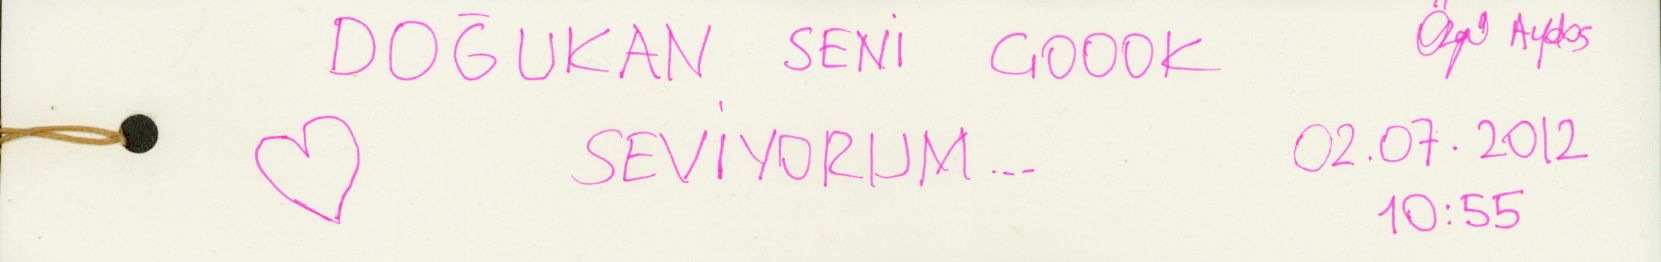 DOĞUKAN SENİ GOOOK
SEVİYORUM...
Özgü Aydos
02.07.2012
10:55